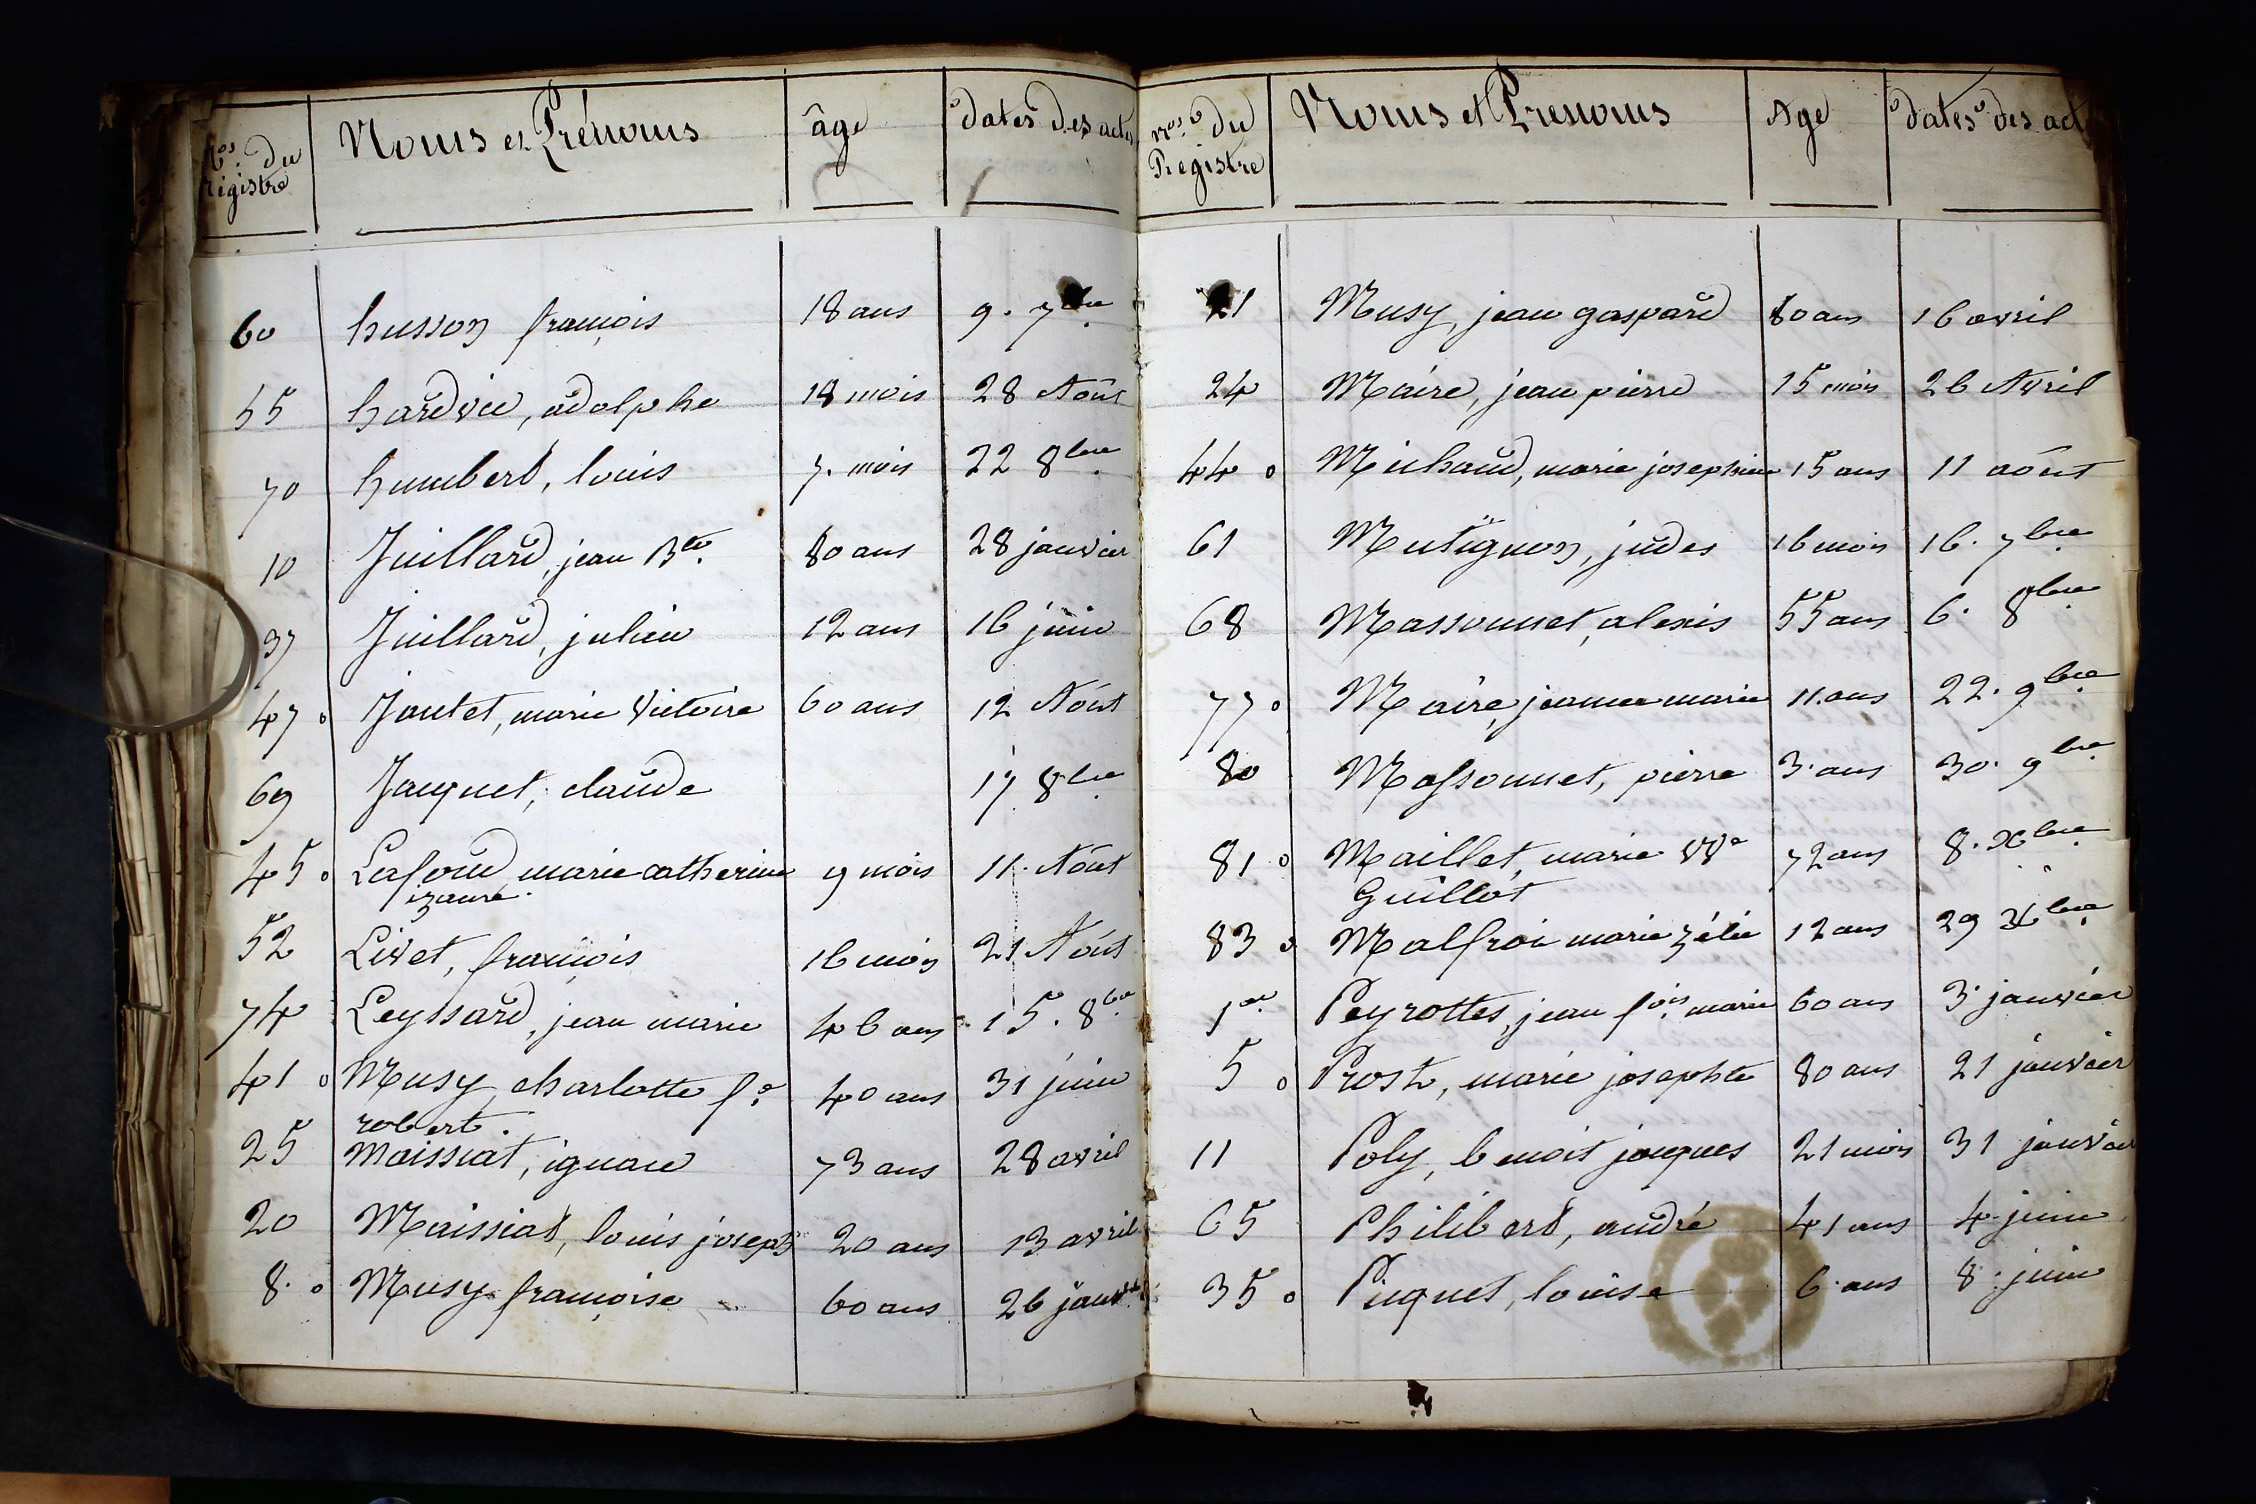 Nos. du Noms et Prénoms âge dates des actes
registre
60 husson françois 18 ans 9. 7bre
55 hardvie, adolphe 18 mois 28 Août
70 humbert, louis 7. mois 22 8bre
10 Juillard, jean Bte. 80 ans 28 janvier
37 Juillard, julien 12 ans 16 juin
47 o Jantet, marie Victoire 60 ans 12 Août
69 Jacquet, claude 17 8bre
45 o marie catherine 9 mois 11. Août
izaure.
52 Livet, françois 16 mois 21 Août
74 Leyssard, jean marie 46 ans 15. 8bre
41 o Musy, charlotte fe. 40 ans 31 juin
robert.
25 Moissiat, ignace 73 ans 28 avril
20 Maissiat, louis joseph 20 ans 13 avril
8. o Musy françoise 60 ans 26 janv.
Nos. du Noms et Prenoms Age dates des act
Registre
21 Musy, jean gaspard 80 ans 16 avril
24 Maire, jean pierre 15 mois 26 Avril
44 o Michaud, marie josephine 15 ans 11 août
61 Mutignon, judes 16 mois 16. 7bre
68 Massonnet, alexis 55 ans 6. 8bre
77 o Maire, jeanne marie 11. ans 22. 9bre
80 Massonnet, pierre 3. ans 30. 9bre
81 o Maillet, marie Vve 72 ans 8. Xbre
Guillot
83 o Malfroi marie zélie 12 ans 29 Xbre
1er Peyrottes, jean fois. marie 60 ans 3. janvier
5 o Prost, marie josephte 80 ans 21 janvier
11 Poly, benoit jacques 21 mois 31 janvier
65 Philibert, andré 41 ans 4. juin
35 o Piquet, louise 6. ans 8. juin